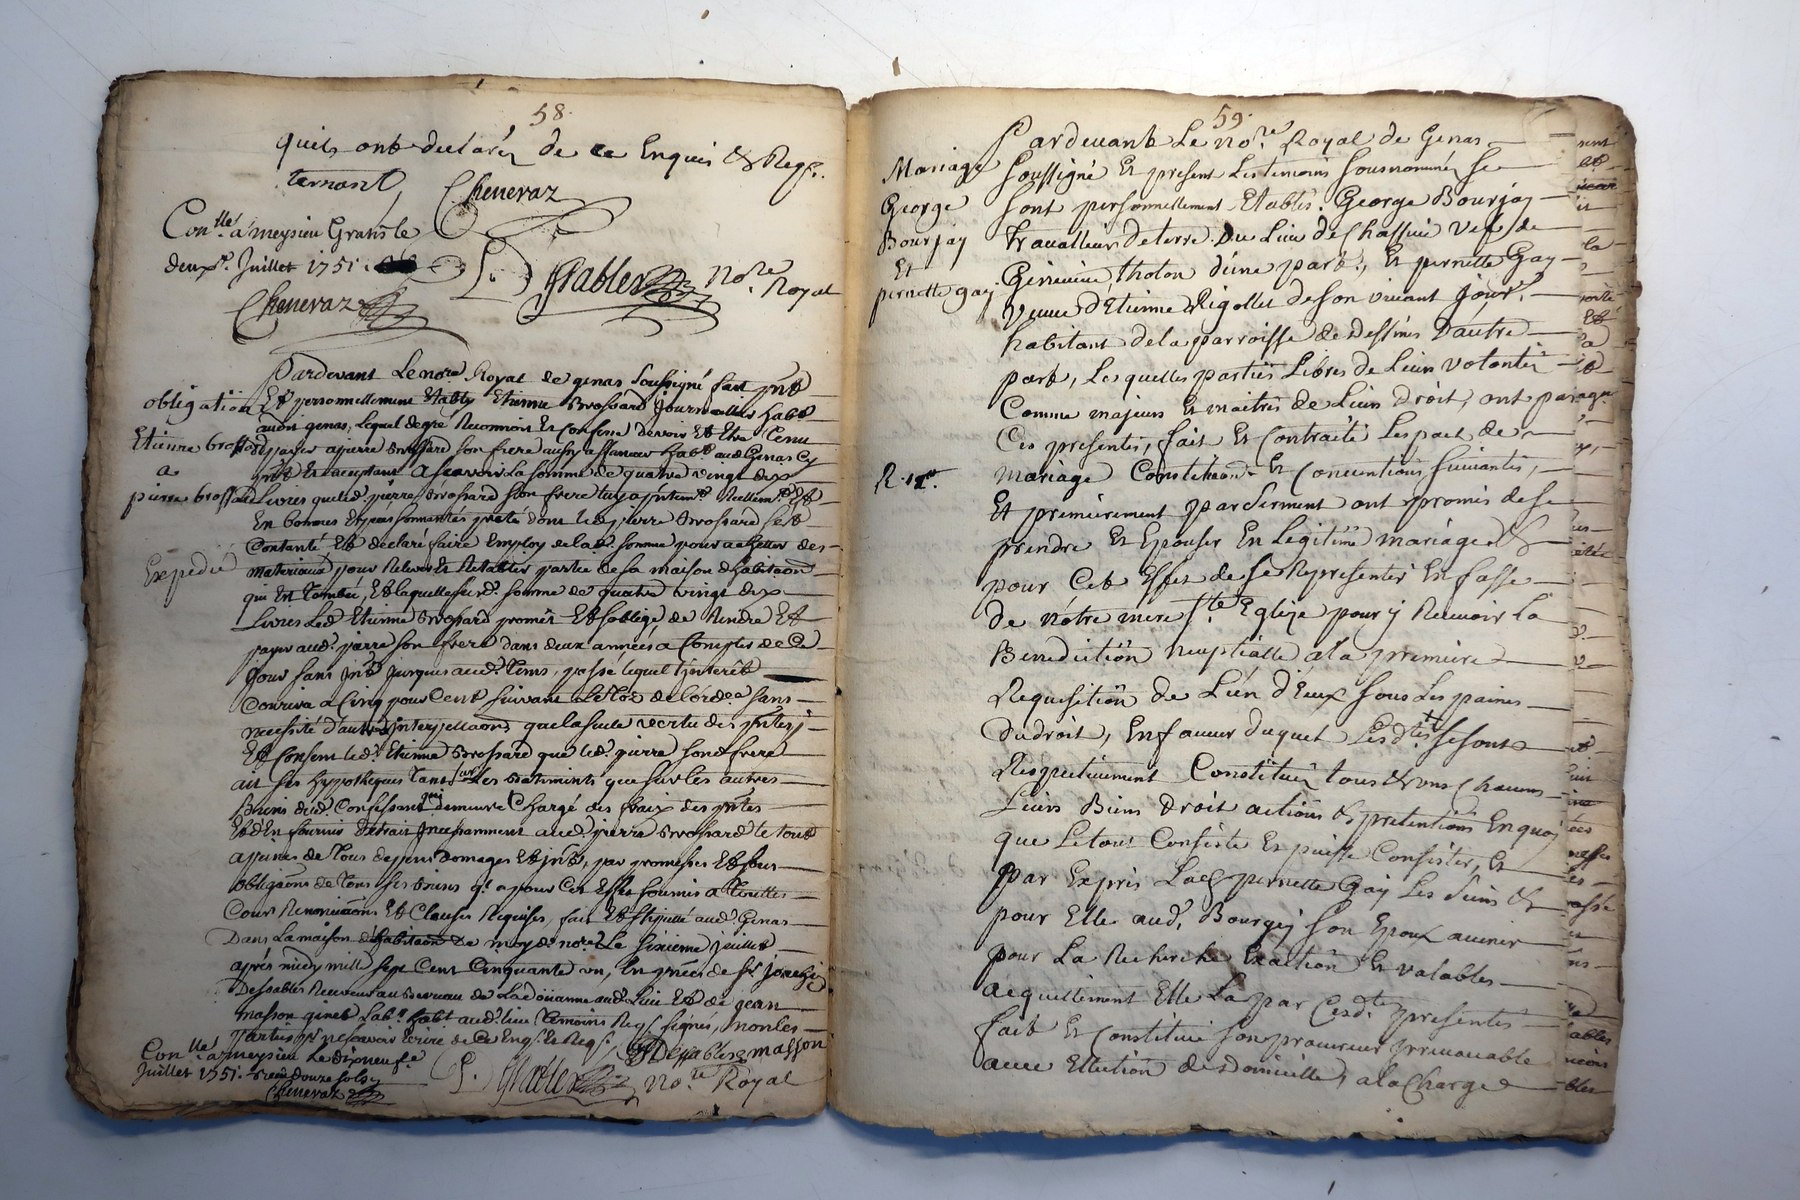 58.
quils ont declarés de ce Enquis & Reqs.
Chenevaz
Conlle a meysieu Gratis le
deuxe. Juillet 1751.
Chenevaz
Nore. Royal
obligation
Etienne brossard
a
pierre brossard
Expedié
Pardevant Le nore Royal de genas soussigné fut pnt
Et personnellement Etably Etienne Brossard Journallier habt
audit genas, Lequel de gré Reconnoit Et Confesse devoir Et Etre Tenu
payer a pierre Brossard son frere aussy habt. aud. Genas Cy
pnt Et acceptant a scavoir La somme de quatre vingt dix
Livres que led. pierre Brossard son frere luy a Reellemt. Et
En bonnes Especes sonnantes preté dont led. pierre Brossard s'est
Contenté, Et declaré faire Employ de lad. somme pour achetter des
materiaux pour Relever Et Retablir partie de sa maison d'habitaon
qui Est Tombée, Et laquelle susd. somme de quatre vingt dix
Livres Led. Etienne Brossard promet Et s'oblige de Rendre Et
payer aud. pierre son frere dans deux années a Compter de Ce
Jour sans jnt Jusques aud. Tems, passé lequel l'jnterêt
Courira a Cinq pour Cent suivant
necessité d'autre jnterpellaons que la seule vertu des pntes,
Et Consent led. Etienne Brossard que led. pierre son frere
ait ses hypotheques Tant sur les Batiments que sur les autres
Biens dud. Confessant qui demeure Chargé des fraix des pntes
Et d'En fournir Extrait jncessamment aud. pierre Brossard le tout
a peines de Tous depens domages Et jnts, par promesses Et sous
obligaons de Tous ses Biens qu'il a pour Cet Effet soumis a Touttes
Cour Renonciaons Et Clauses Requises, fait Et stipullé aud. Genas
Dans La maison d'habitaon De moy d. nore. Le sixieme juillet
après midy mille sept Cent Cinquante un, En pnce de sr.
Desvables Receveur au Bureau de La doüanne aud. Lieu Et de jean
masson Labr. habt aud. lieu Temoins Reqs. signés, non les
parties pr. ne scavoir Ecrire de Ce Enqs. Et Reqs.
masson
Conlle. a meysieu Le dixneufe.
Juillet 1751. Receu douze sols
Chenevaz
nore. Royal
59.
Mariage
George
Bourjay
Et
pernette gay.
R. 
Pardevant Le nore. Royal de Genas
soussigné Et present Les temoins sousnommés se
sont personnellement Etablis. George Bourjay
travailleur de terre du Lieu de Chassieu vefs de
tholon d'une part, Et pernette Gay
veuve d'Etienne Rigollet de son vivant
habitant de la parroisse de Dessines D'autre
part, Lesquelles parties Libres de Leur volonté
Comme majeurs Et maitres de Leurs Droits, ont par
Ces presentes, fait Et Contracté Les pact de
mariage Constitution Et Conventions suivantes,
Et premierement par serment ont promis de se
prendre Et Epouser En Legitime mariage &
pour Cet Effet de se Representer En fasse
de nôtre mere ste. Eglize pour y Recevoir La
Benediction Nuptialle a la premiere
Requisition de L'un d'Eux sous Les paines
du droit, En faveur duquel Les dtes se sont
Respectivement Constitués tous & uns Chacuns
Leurs Biens Droit actions & pretentions En quoy
que Le tout Consiste Et puisse Consister, Et
par Exprès Lad. pernette Gay Les siens &
pour Elle aud. Bourgey son Epoux avenir
pour La Recherche Exaction Et valables
acquittement Elle La par Cesd. presentes
fait Et Constitué son procureur jrrevocable
avec Ellection de domicille, a la Charge